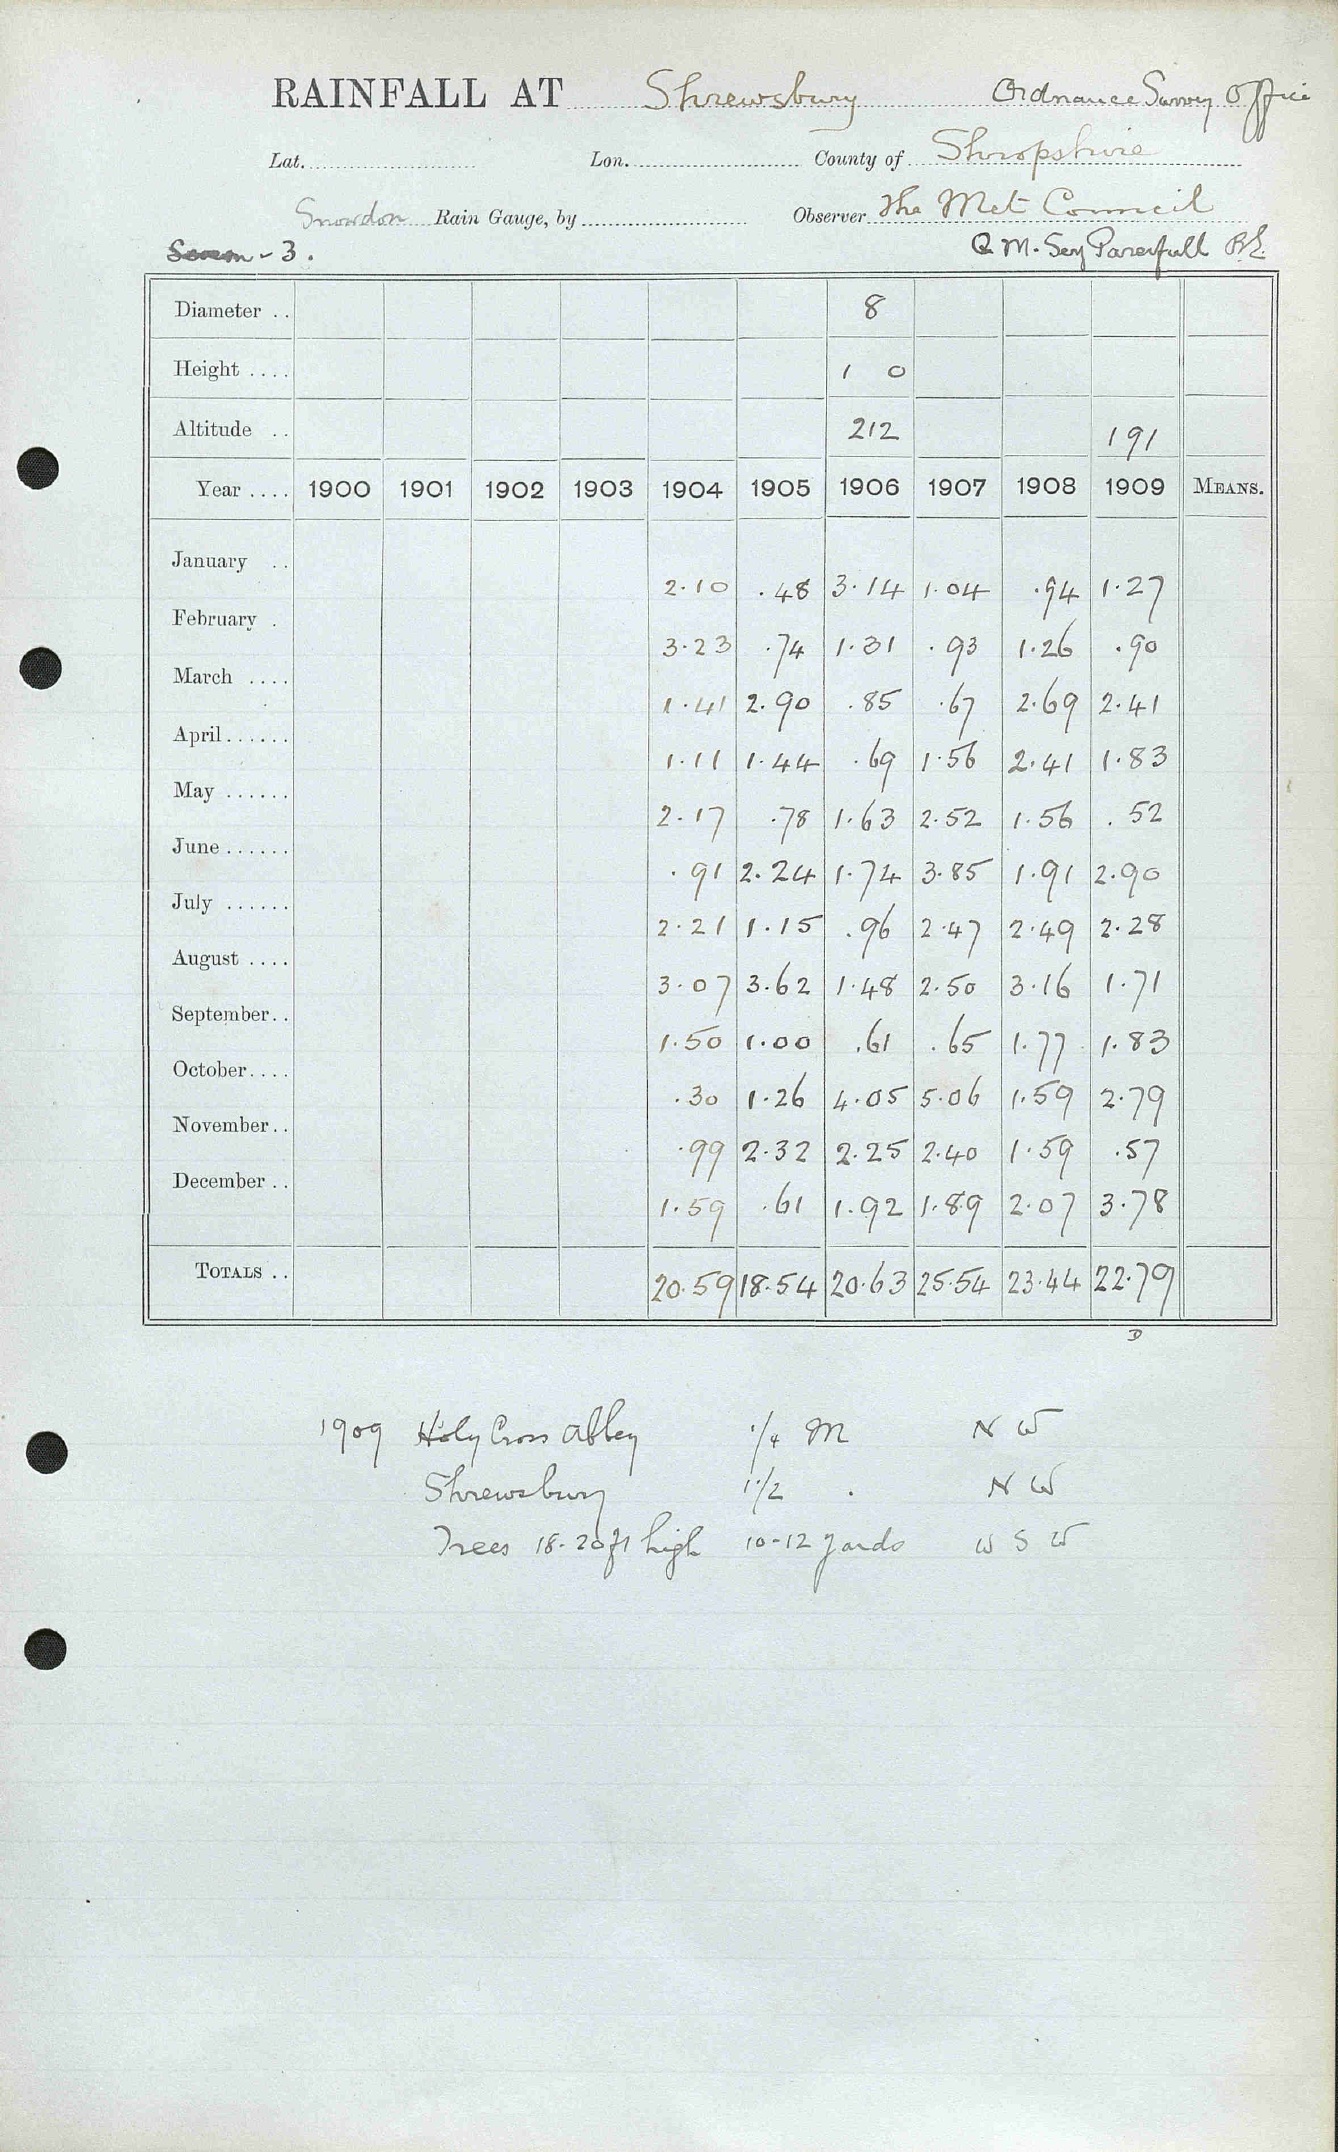 RAINFALL AT Shrewsbury Ordnance Survey Office
Lat. Lon. County of Shropshire
Snowdon Rain Gauge, by Observer The Met Council
Severn - 3. Q M. Serj R.E.
Diameter .. 8
Height .... 1 0
Altitude .. 212 191
Year .... 1900 1901 1902 1903 1904 1905 1906 1907 1908 1909 MEANS.
January .. 2.10 .48 3.14 1.04 .94 1.27
February . 3.23 .74 1.31 .93 1.26 .90
March .... 1.41 2.90 .85 .67 2.69 2.41
April...... 1.11 1.44 .69 1.56 2.41 1.83
May ...... 2.17 .78 1.63 2.52 1.56 .52
June...... .91 2.24 1.74 3.85 1.91 2.90
July ...... 2.21 1.15 .96 2.47 2.49 2.28
August .... 3.07 3.62 1.48 2.50 3.16 1.71
September.. 1.50 1.00 .61 .65 1.77 1.83
October.... .30 1.26 4.05 5.06 1.59 2.79
November.. .99 2.32 2.25 2.40 1.59 .57
December .. 1.59 .61 1.92 1.89 2.07 3.78
TOTALS .. 20.59 18.54 20.63 25.54 23.44 22.79
D
1909 Holy Cross Abbey 1/4 M N W
Shrewsbury 1 1/2 . N W
Trees 18-20ft high 10-12 yards W S W